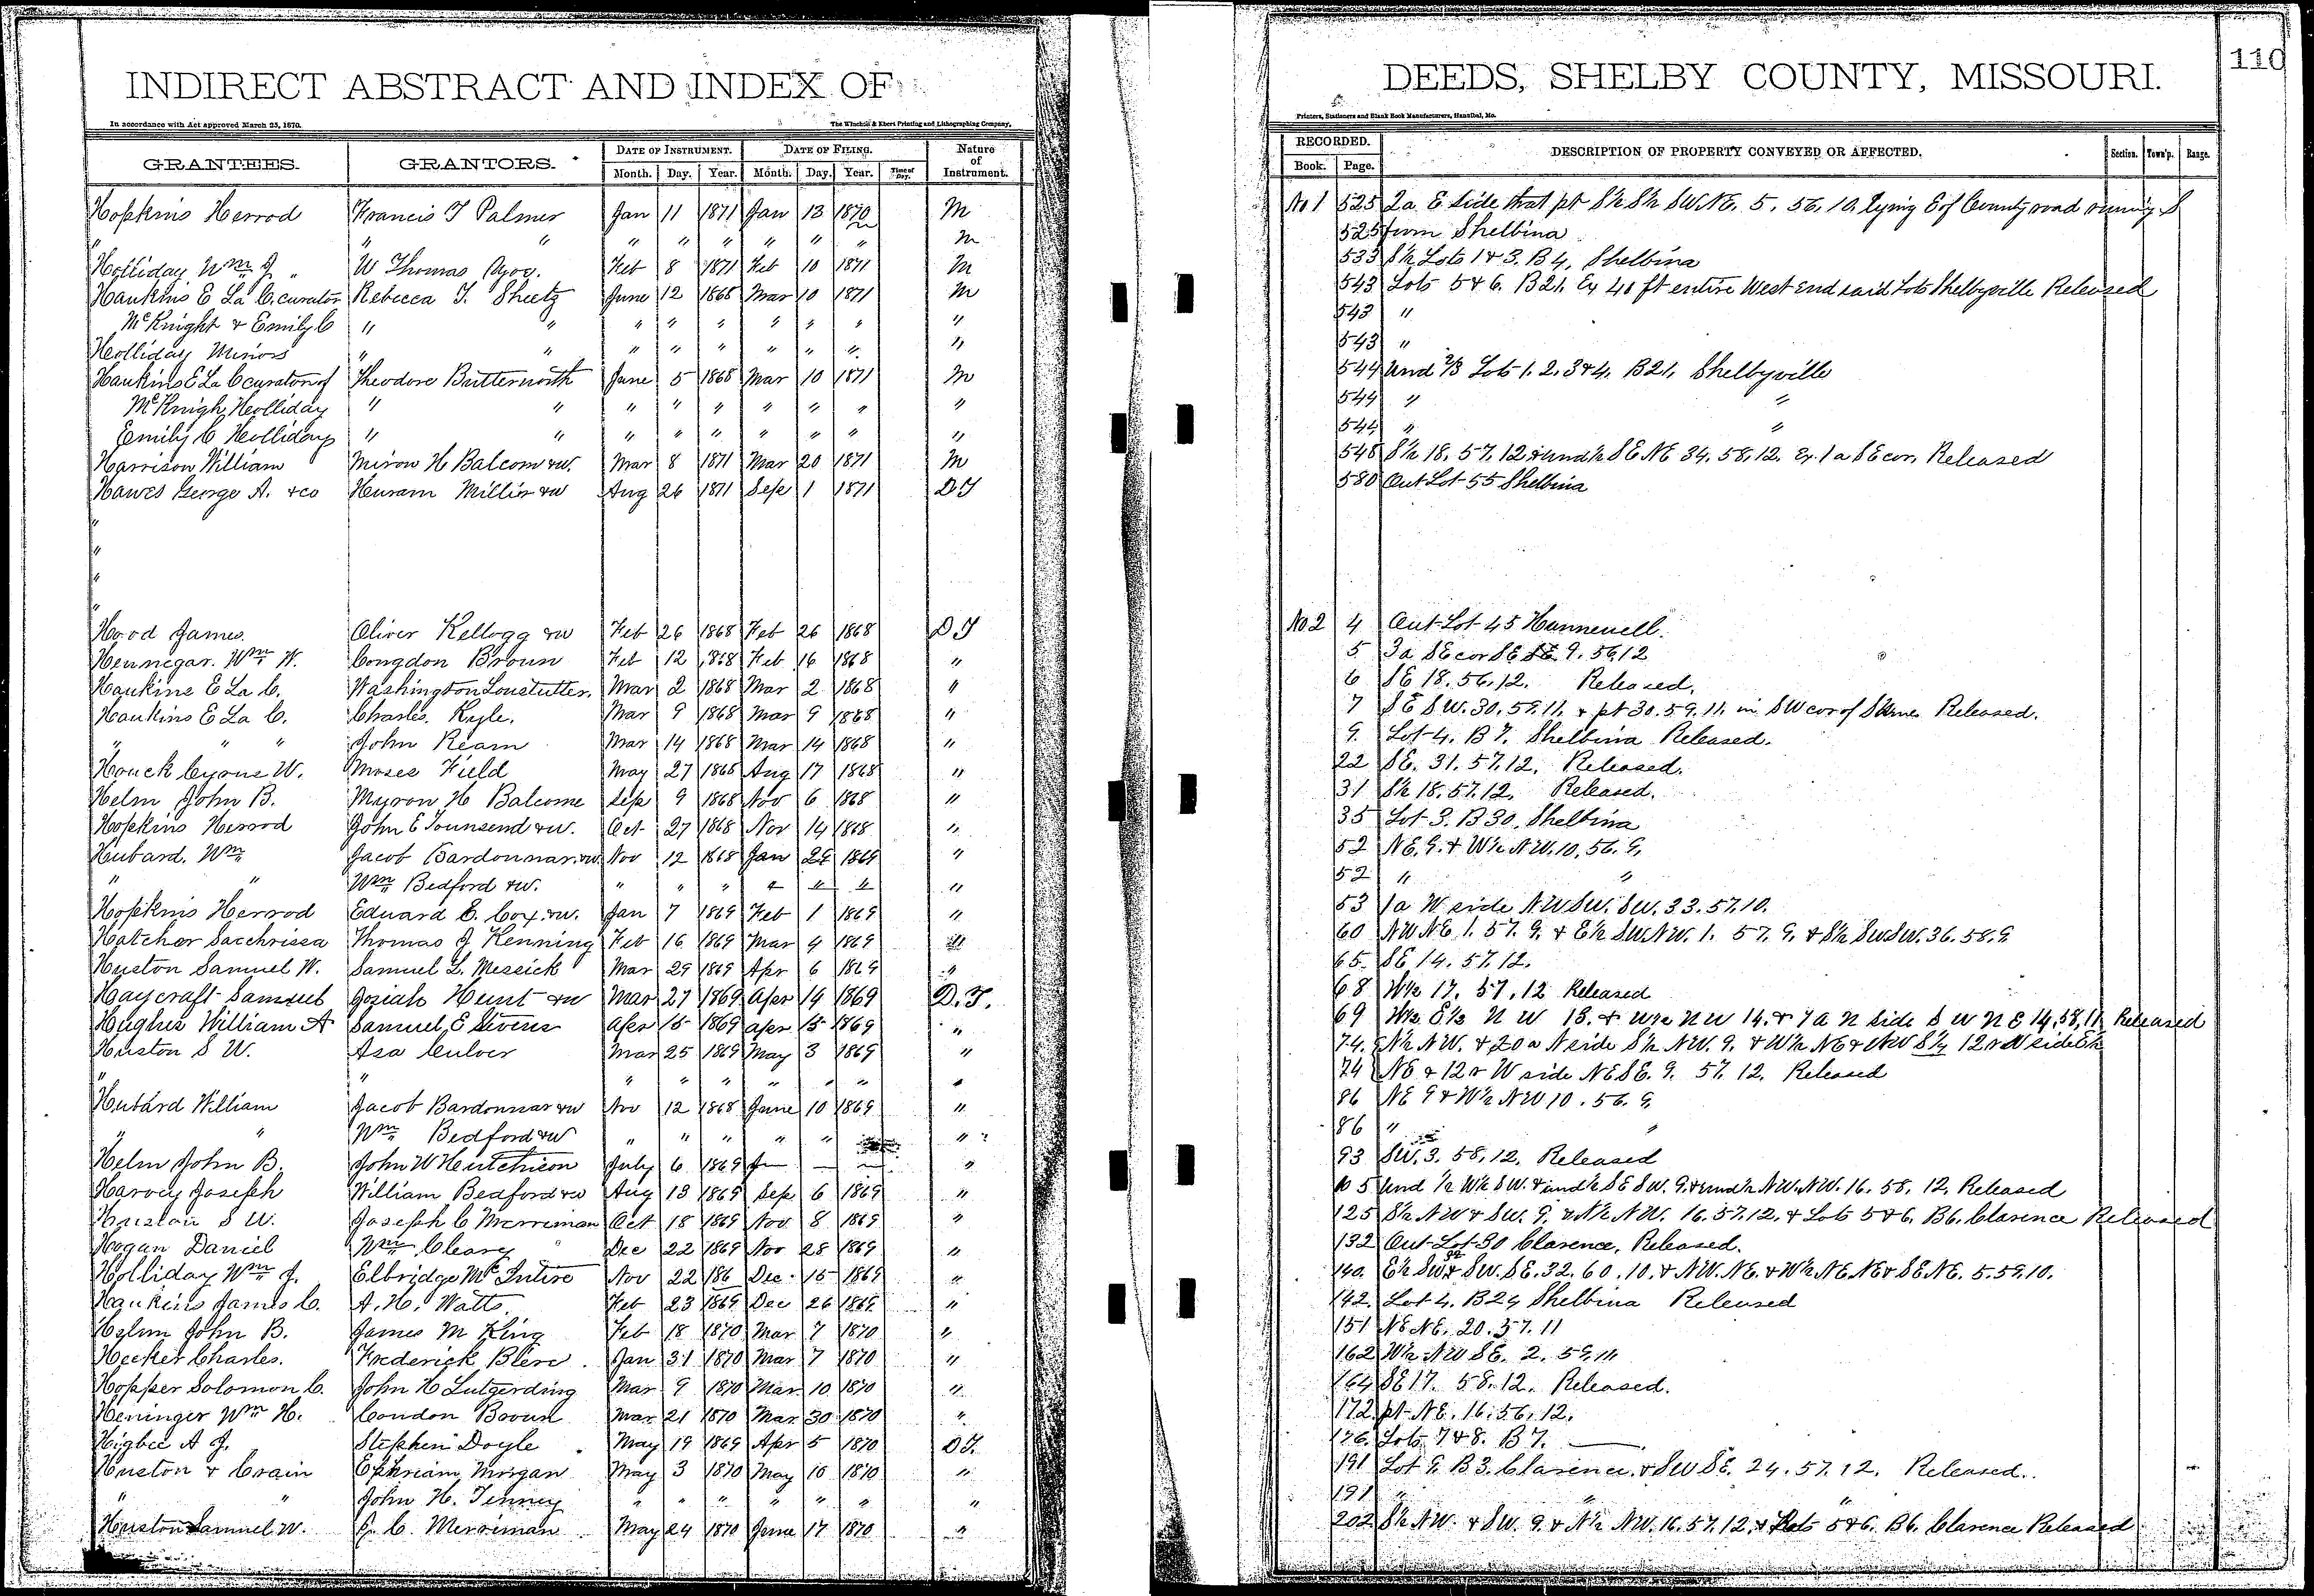 INDIRECT ABSTRACT AND INDEX OF
In accordance with Act approved March 25, 1870. The Winchell & Ebert Printing and Lithographing Company,
GRANTEES. GRANTORS. DATE OF INSTRUMENT. DATE OF FILING. Nature of Instrument.
Month. Day. Year. Month. Day. Year. Time of Day.
Hopkins Herrod Francis T Palmer Jan 11 1871 Jan 13 1870 M
" " " " " " " " " M
Holliday Wm J " W Thomas Feb 8 1871 Feb 10 1871 M
Hankins E La C. curator Rebecca T. Sheetz June 12 1868 Mar 10 1871 M
McKnight & Emily C " " " " " " " " "
Holliday Minors " " " " " " " " "
Hankins E La C curator of Theodore Butterworth June 5 1868 Mar 10 1871 M
McKnigh Holliday " " " " " " " " "
Emily C Holliday " " " " " " " " "
Harrison William Miron H Balcom &w. Mar 8 1871 Mar 20 1871 M
Hawes George A. & co Huram Miller &w Aug 26 1871 Sep 1 1871 DT
"
"
"
"
Hood James. Oliver Kellogg &w Feb 26 1868 Feb 26 1868 DT
Hennegar. Wm W. Congdon Broun Feb 12 1868 Feb 16 1868 "
Hankins E La C. Washington Loustutter. Mar 2 1868 Mar 2 1868 "
Hankins E La C. Charles Kyle. Mar 9 1868 Mar 9 1868 "
" " " John Ream Mar 14 1868 Mar 14 1868 "
Houck Cyrus W. Moses Field May 27 1868 Aug 17 1868 "
Helm John B. Myron H Balcome Sep 9 1868 Nov 6 1868 "
Hopkins Herrod John E Townsend &w. Oct 27 1868 Nov 14 1868 "
Hubard. Wm Jacob Bardonnar &w Nov 12 1868 Jan 29 1869 "
" " Wm Bedford &w. " " " " " " "
Hopkins Herrod Edward E. Cox &w. Jan 7 1869 Feb 1 1869 "
Hatcher Sacchrissa Thomas J Kenning Feb 16 1869 Mar 4 1869 "
Huston Samuel W. Samuel L. Messick Mar 29 1869 Apr 6 1869 "
Haycraft Samuel Josiah Hunt &w Mar 27 1869 Apr 14 1869 D.T.
Hughes William A Samuel E Sivens Apr 15 1869 Apr 15 1869 "
Huston S W. Asa Culver Mar 25 1869 May 3 1869 "
" " " " " " " " "
Hubard William Jacob Bardonnar &w Nov 12 1868 June 10 1869 "
" " Wm Bedford &w " " " " " "
Helm John B. John W Hutchison July 6 1869 "
Harvey Joseph William Bedford &w Aug 13 1869 Sep 6 1869 "
Huston S W. Joseph C Merriman Oct 18 1869 Nov 8 1869 "
Hogan Daniel Wm Cleary Dec 22 1869 Nov 28 1869 "
Holliday Wm J. Elbridge McIntire Nov 22 186 Dec 15 1869 "
Hankins James C. A. H. Watts Feb 23 1869 Dec 26 1869 "
Helm John B. James M King Feb 18 1870 Mar 7 1870 "
Hecker Charles. Frederick Jan 31 1870 Mar 7 1870 "
Hopper Solomon C. John H Lutgerding Mar 9 1870 Mar 10 1870 "
Heninger Wm H. Condon Broun Mar 21 1870 Mar 30 1870 "
Higbee A J. Stephen Doyle May 19 1869 Apr 5 1870 DT.
Huston & Crain Ephriam Morgan May 3 1870 May 10 1870 "
" " John H. Tenney " " " " " " "
Huston Samuel W. J. C. Merriman May 24 1870 June 17 1870 "
DEEDS, SHELBY COUNTY, MISSOURI.
110
Printers, Stationers and Blank Book Manufacturers, Hannibal, Mo.
RECORDED. DESCRIPTION OF PROPERTY CONVEYED OR AFFECTED. Section. Town'p. Range.
Book. Page.
No 1 525 2a E side that pt S½ S½ SW.NE. 5. 56. 10. lying E of County road running S
525 from Shelbina
533 S½ Lots 1 & 3. B 4, Shelbina
543 Lots 5 & 6. B 21. Ex 40 ft entire West end said Lots Shelbyville Released
543 "
543 "
544 und 2/3 Lots 1. 2. 3 & 4. B 21, Shelbyville
544 " "
544 " "
548 S½ 18. 57. 12 & und ½ SE NE 34. 58. 12. Ex. 1 a SE cor. Released
580 Out Lot 55 Shelbina
No 2 4 Out Lot 45 Hunnewell.
5 3a SE cor SE SE. 9. 56. 12
6 SE 18. 56. 12. Released.
7 SE SW. 30. 59. 11. & pt 30. 59. 11. in SW cor of Released.
9. Lot 4. B 7. Shelbina Released.
22 SE. 31. 57. 12. Released.
31 S½ 18. 57. 12. Released.
35 Lot 3. B 30. Shelbina
52 NE. 9. & W½ NW. 10. 56. 9.
52 " "
53 1a W side NW SW. SW. 33. 57. 10.
60 NW NE 1. 57. 9. & E½ SW NW. 1. 57. 9. & S½ SW SW. 36. 58. 9
65. SE 14. 57. 12.
68 W½ 17. 57. 12 Released
69 W½ E½ N W 13. & W½ N W 14. & 7 a N side S W N E 14, 58, 11, Released
74. N½ NW. & 20 a N side S½ NW. 9. & W½ NE & NW
74 NE & 12 a W side NE SE. 9. 57. 12. Released
86 NE 9 & W½ NW 10. 56. 9.
86 " "
93 SW. 3. 58. 12. Released
105 und ½ W½ SW. & und ½ SE SW. 9. & und ½ NW. NW. 16. 58. 12. Released
125 S½ NW & SW. 9. & N½ NW. 16. 57. 12. & Lots 5 & 6. B 6. Clarence Released
132 Out Lot 30 Clarence. Released.
140. E½ SW & SW. SE. 32. 60. 10. & NW. NE. & W½ NE. NE & SE NE. 5. 59. 10.
142. Lot 4. B 24 Shelbina Released
151 NE NE. 20. 57. 11
162 W½ NW SE. 2. 59. 11
164 SE 17. 58. 12. Released.
172. pt NE. 16. 56. 12.
176. Lots 7 & 8. B 7.
191 Lot 9. B 3. Clarence. & SW SE. 24. 57. 12. Released.
191 " " "
202 S½ NW. & SW. 9. & N½ NW. 16. 57. 12. & Lots 5 & 6. B 6. Clarence Released